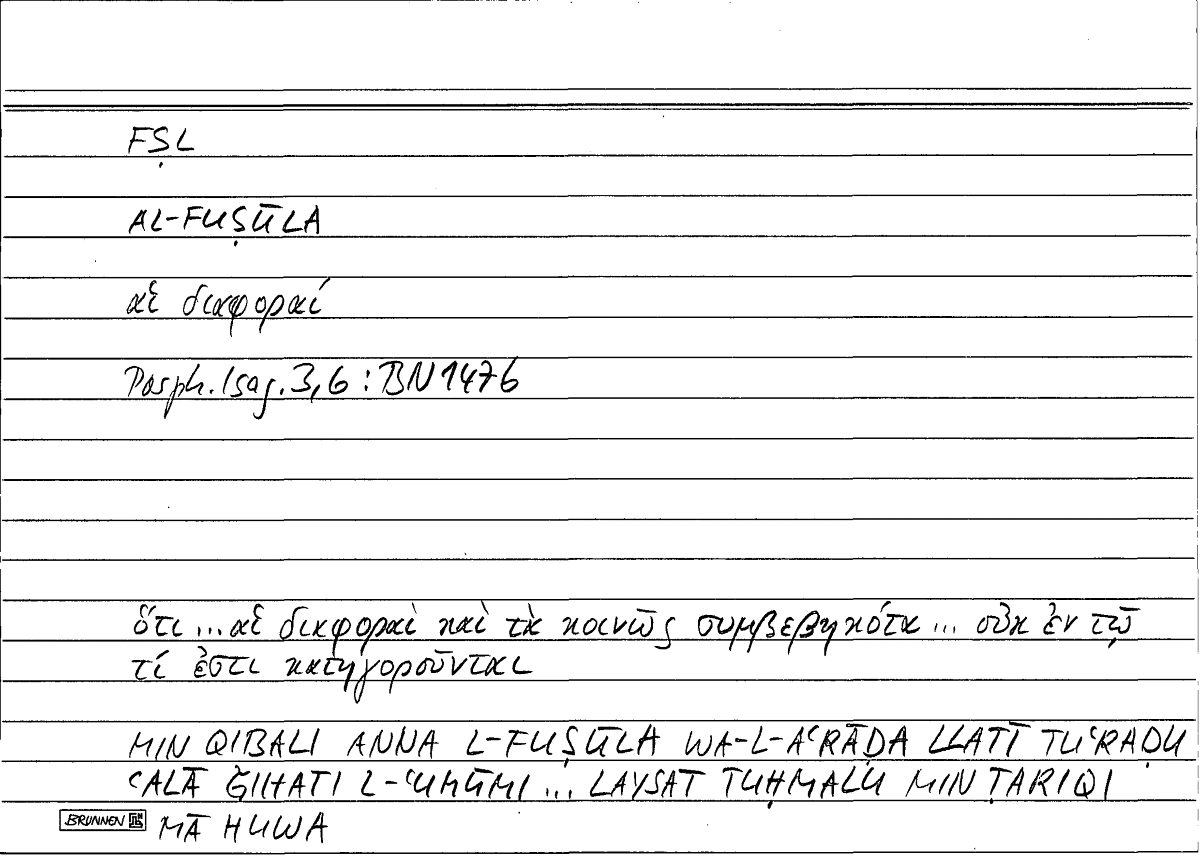 FṢL
AL-FUṢŪLA
αἱ διαφοραί
Porph. Isag. 3,6 : BN 1476
ὅτι ... αἱ διαφοραὶ καὶ τὰ κοινῶς συμβεβηκότα ... οὐκ ἐν τῷ
τί ἐστι κατηγοροῦνται
MIN QIBALI ANNA L-FUṢŪLA WA-L-AʿRĀḌA LLATĪ TUʿRAḌU
ʿALĀ ǦIHATI L-ʿUMŪMI ... LAYSAT TUḤMALU MIN ṬARIQI
BRUNNEN MĀ HUWA